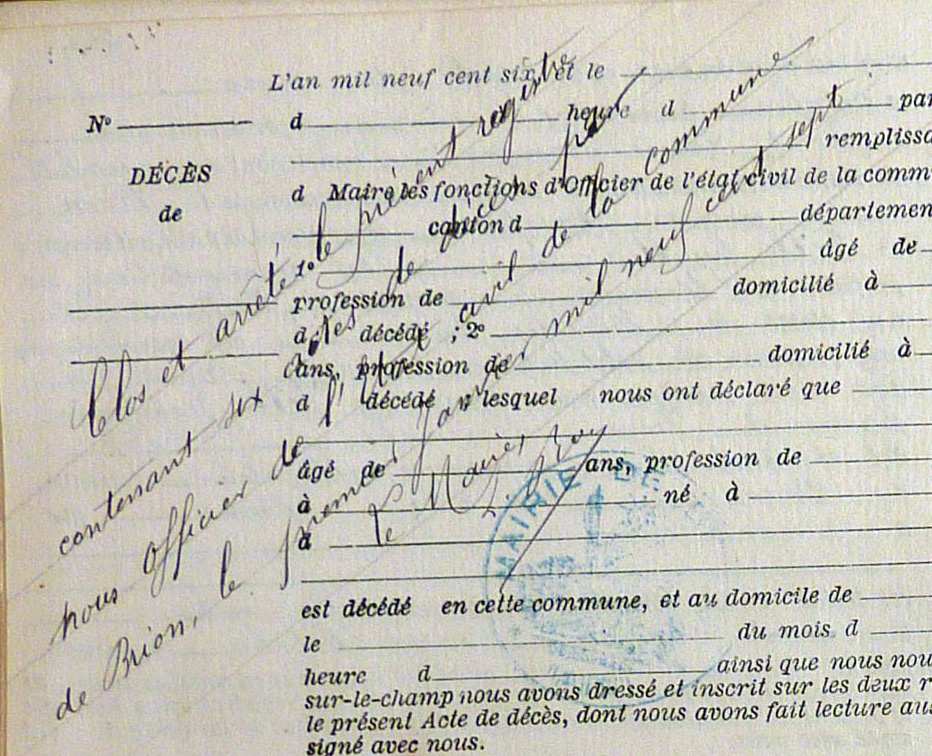 L'an mil neuf cent six et le
N° d heure d par
remplissa
DÉCÈS
d Maire les fonctions d'Officier de l'état civil de la comm
de
canton d département
1° âgé de
profession de domicilié à
d décédé ; 2°
ans, profession de domicilié à
d décédé , lesquel nous ont déclaré que
âgé de ans, profession de
à né à
d
est décédé en cette commune, et au domicile de
le du mois d
heure d ainsi que nous nou
sur-le-champ nous avons dressé et inscrit sur les deux r
le présent Acte de décès, dont nous avons fait lecture au
signé avec nous.
Clos et arrêté le présent registre
contenant six actes de décès par
nous Officier de l'état civil de la commune
de Brion, le premier janvier mil neuf cent sept
Le Maire,
MAIRIE DE